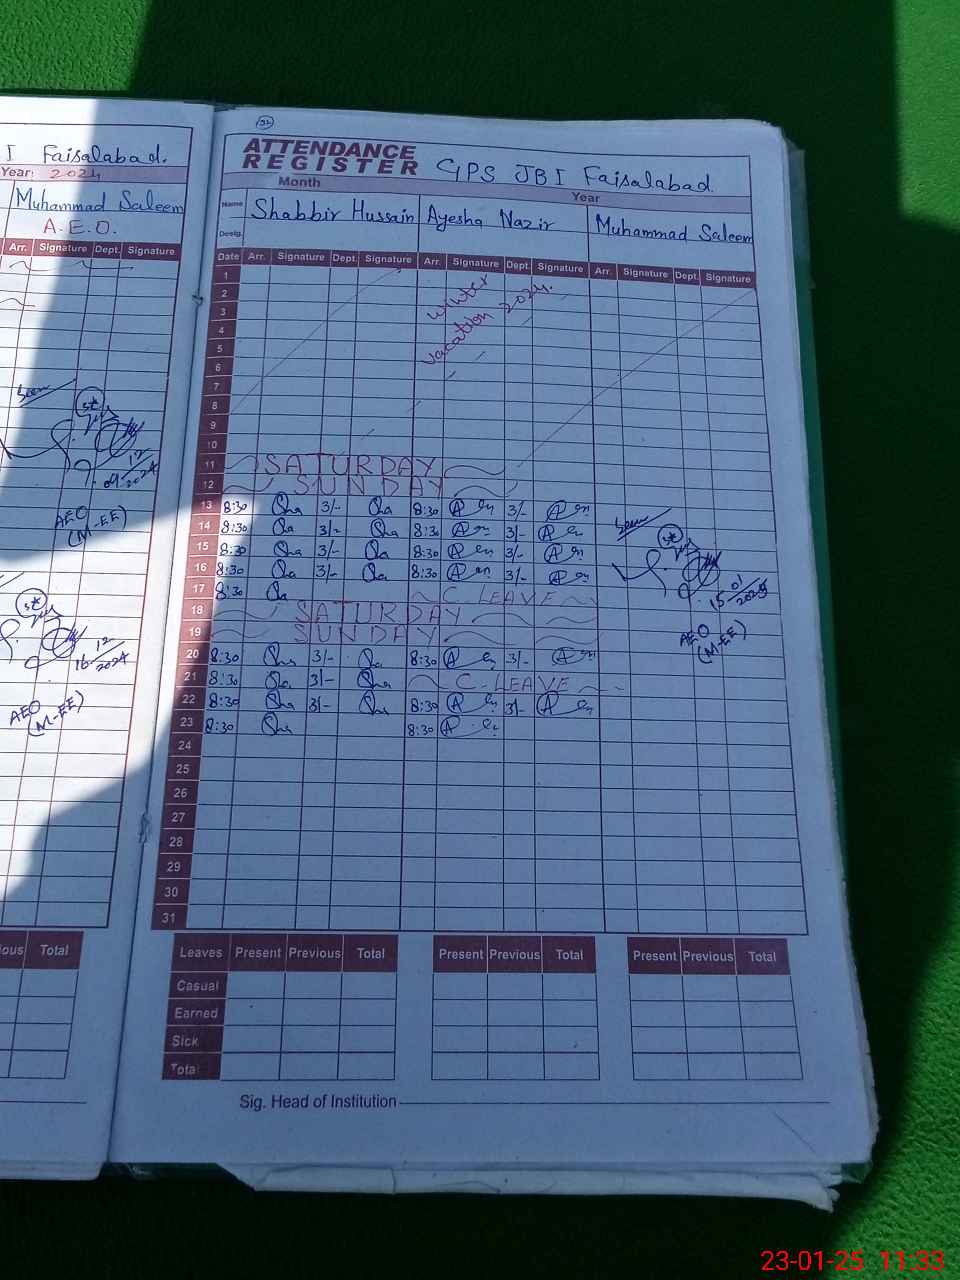 I Faisalabad.
Year: 2024
Muhammad Saleem
A.E.O.
Arr. Signature Dept. Signature
Seen
09 12 2024
AEO
(M-EE)
16 12 2024
AEO
(M-EE)
ious Total
32
ATTENDANCE
REGISTER GPS JBI Faisalabad
Month Year
Name Shabbir Hussain Ayesha Nazir Muhammad Saleem
Desig.
Date Arr. Signature Dept. Signature Arr. Signature Dept. Signature Arr. Signature Dept. Signature
1
2 winter
3 vacation 2024.
4
5
6
7
8
9
10
11 SATURDAY
12 SUNDAY
13 8:30 3/- 8:30 3/-
14 8:30 3/- 8:30 3/-
15 8:30 3/- 8:30 3/-
16 8:30 3/- 8:30 3/-
17 8:30 C.LEAVE
18 SATURDAY
19 SUNDAY
20 8:30 3/- 8:30 3/-
21 8:30 3/- C.LEAVE
22 8:30 3/- 8:30 3/-
23 8:30 8:30
24
25
26
27
28
29
30
31
Seen
15 01 2025
AEO
(M-EE)
Leaves Present Previous Total Present Previous Total Present Previous Total
Casual
Earned
Sick
Total
Sig. Head of Institution
23-01-25 11:33